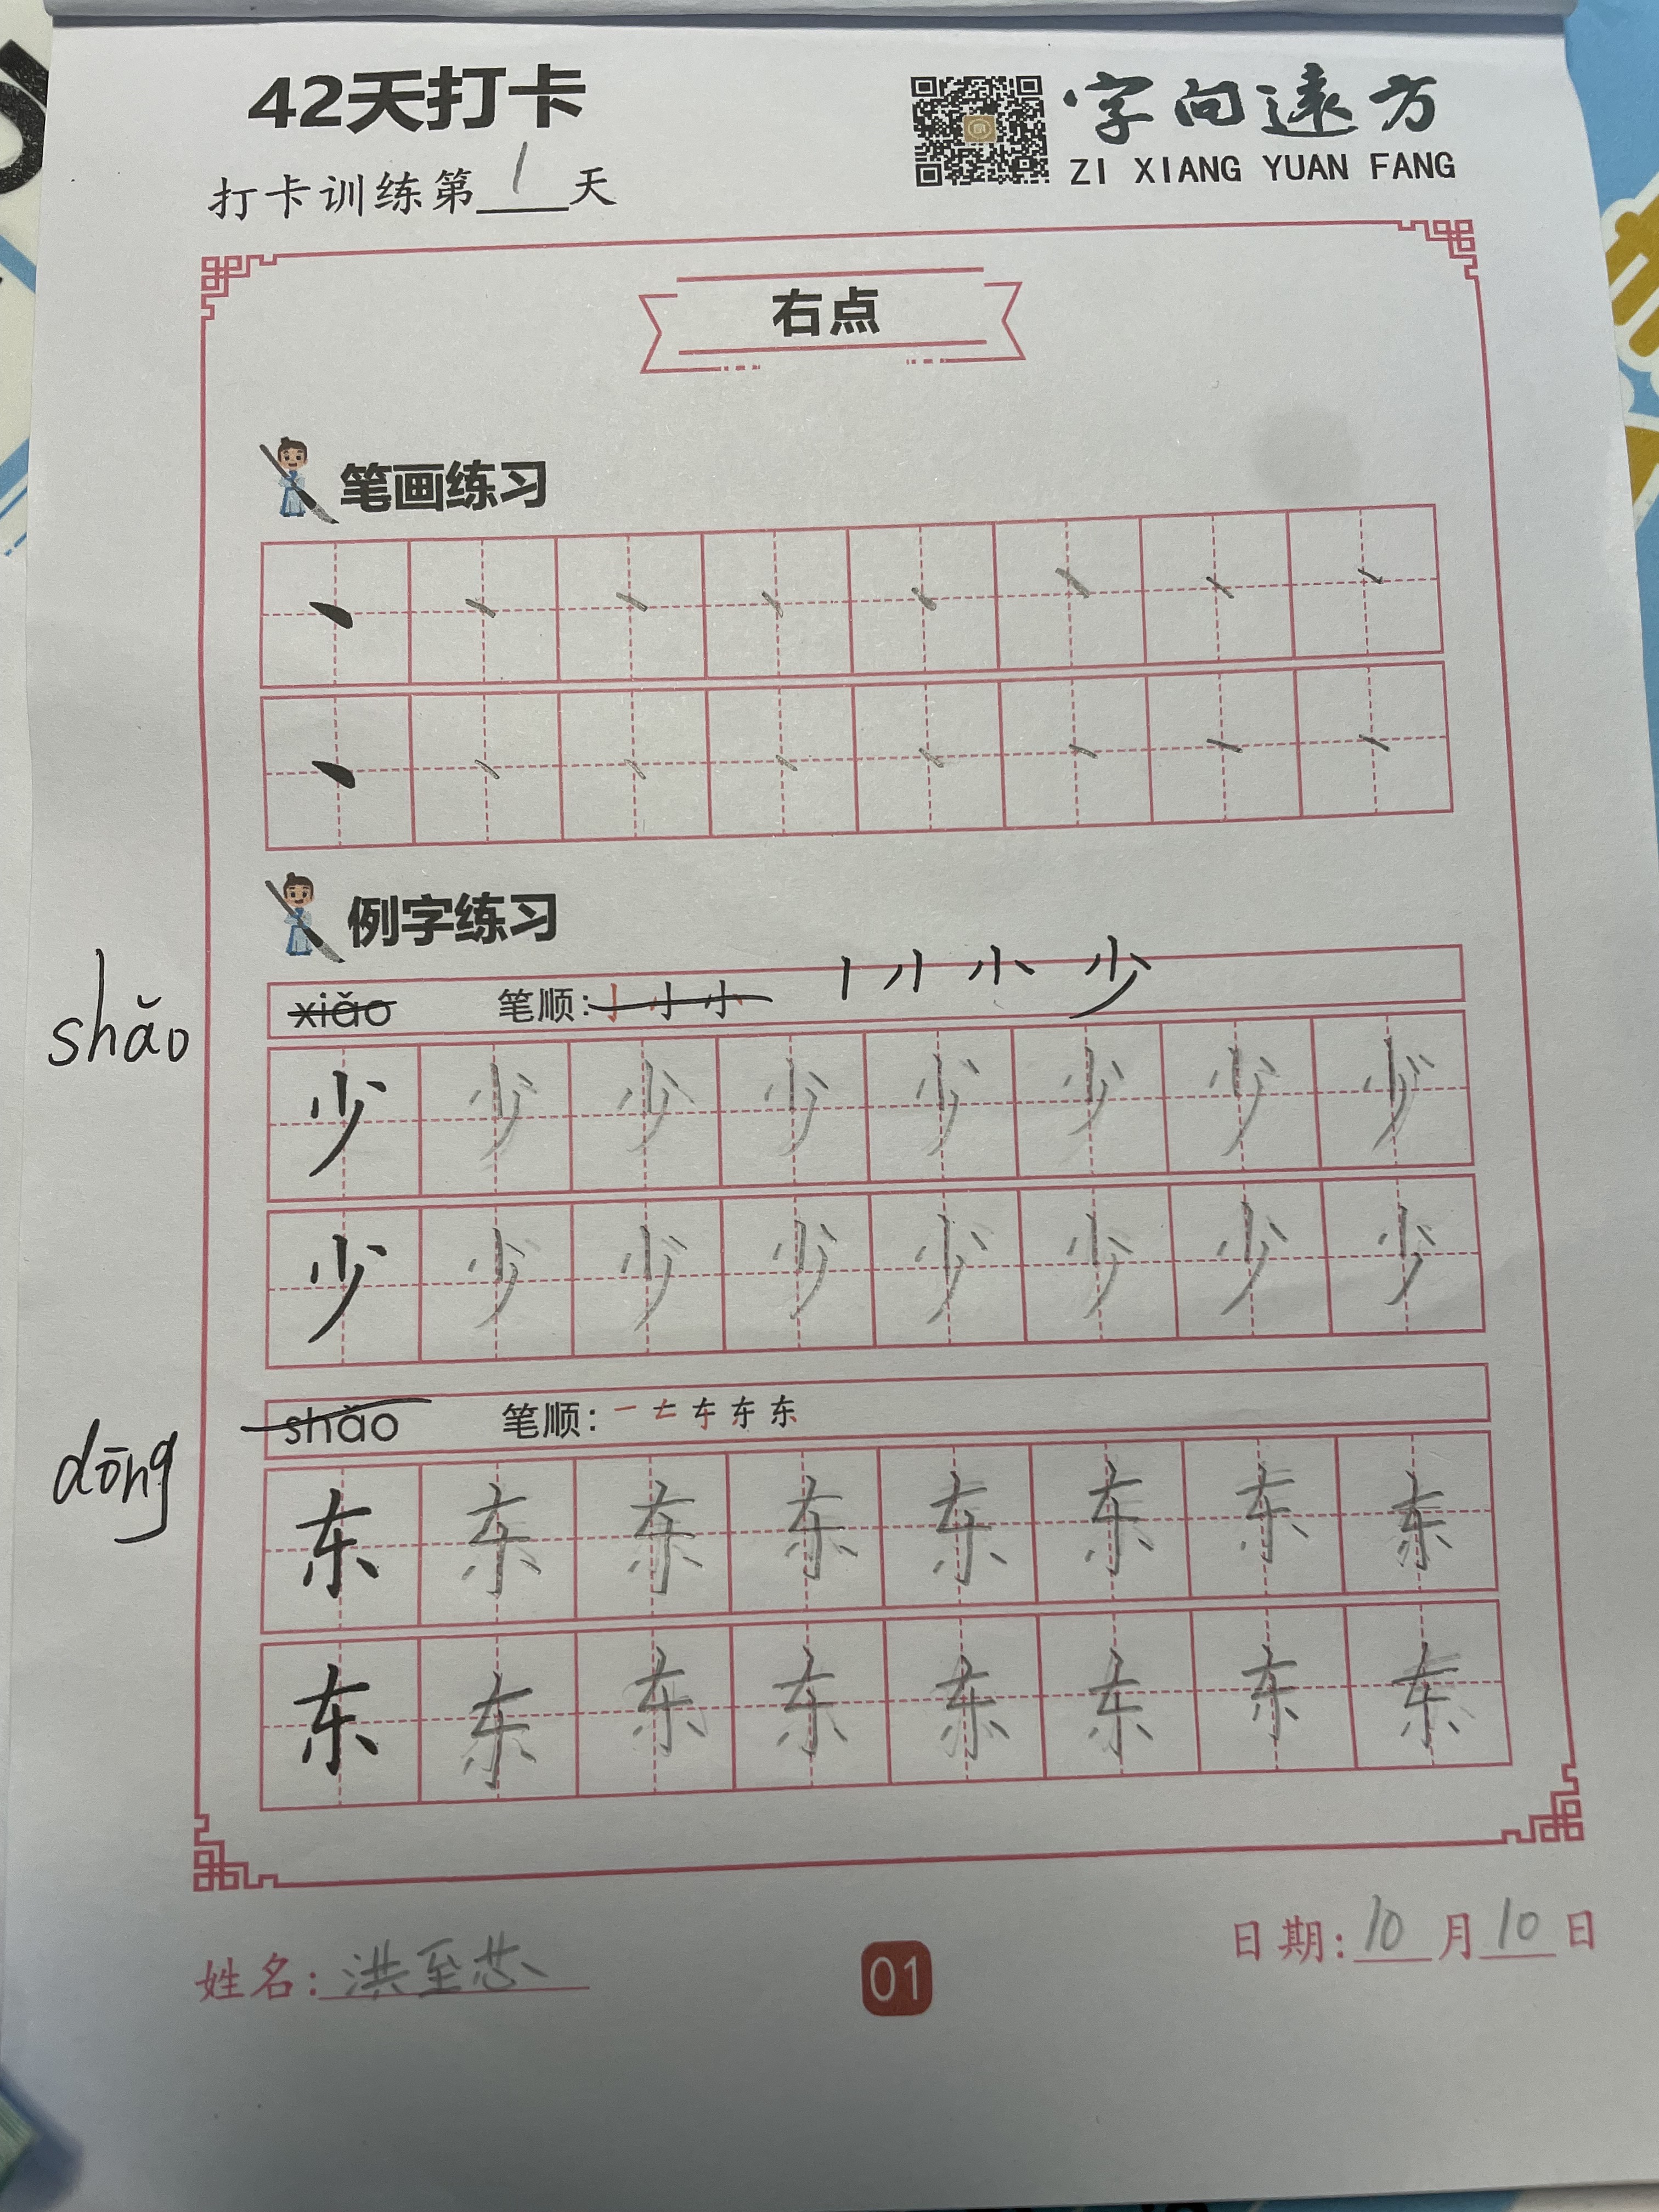 42天打卡
字向遠方
ZI XIANG YUAN FANG
打卡训练第1天
右点
笔画练习
例字练习
shǎo
xiǎo 笔顺: 亅 小 小 丨 小 少
少 少 少 少 少 少 少 少
少 少 少 少 少 少 少 少
dōng
shǎo 笔顺: 一 𠂇 东 东 东
东 东 东 东 东 东 东 东
东 东 东 东 东 东 东 东
姓名: 洪至芯
01
日期: 10月10日